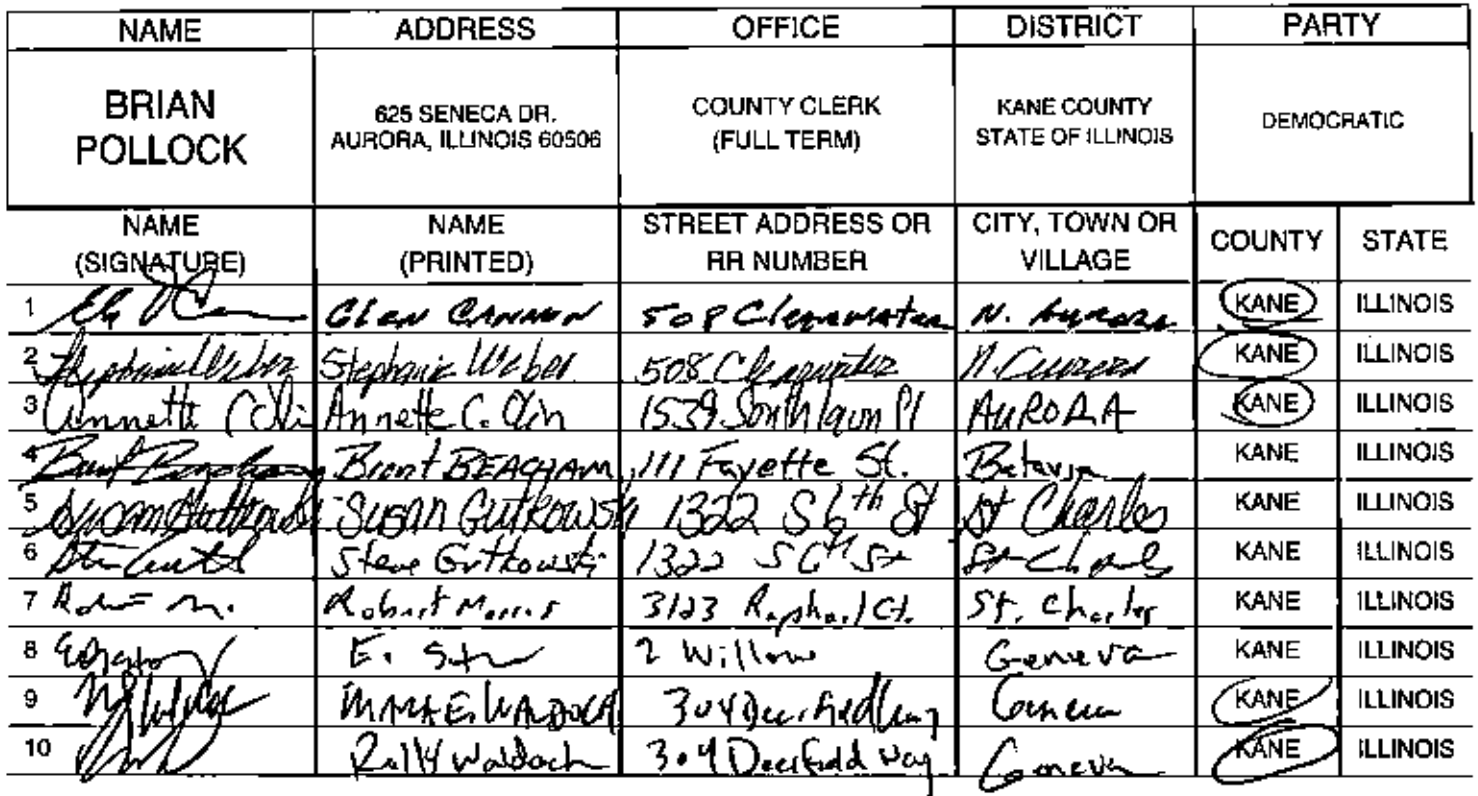 NAME ADDRESS OFFICE DISTRICT PARTY
BRIAN POLLOCK 625 SENECA DR. AURORA, ILLINOIS 60506 COUNTY CLERK (FULL TERM) KANE COUNTY STATE OF ILLINOIS DEMOCRATIC
NAME (SIGNATURE) NAME (PRINTED) STREET ADDRESS OR RR NUMBER CITY, TOWN OR VILLAGE COUNTY STATE
1 Glen CANNON 508 Clearwater N. Aurora KANE ILLINOIS
2 Stephanie Weber Stephanie Weber 508 Clearwater N. Aurora KANE ILLINOIS
3 Annette C. Olin Annette C. Olin 1539 Southlawn Pl AURORA KANE ILLINOIS
4 Brant BEACHAM 111 Fayette St. Batavia KANE ILLINOIS
5 Susan Gutkowski SUSAN GUTKOWSKI 1322 S 6th St St Charles KANE ILLINOIS
6 Steve Gutkowski 1322 S 6th St St Charles KANE ILLINOIS
7 Robert Morris 3123 Raphael Ct. St. Charles KANE ILLINOIS
8 E. 2 Willow Geneva KANE ILLINOIS
9 304 Deerfield Way Geneva KANE ILLINOIS
10 304 Deerfield Way Geneva KANE ILLINOIS